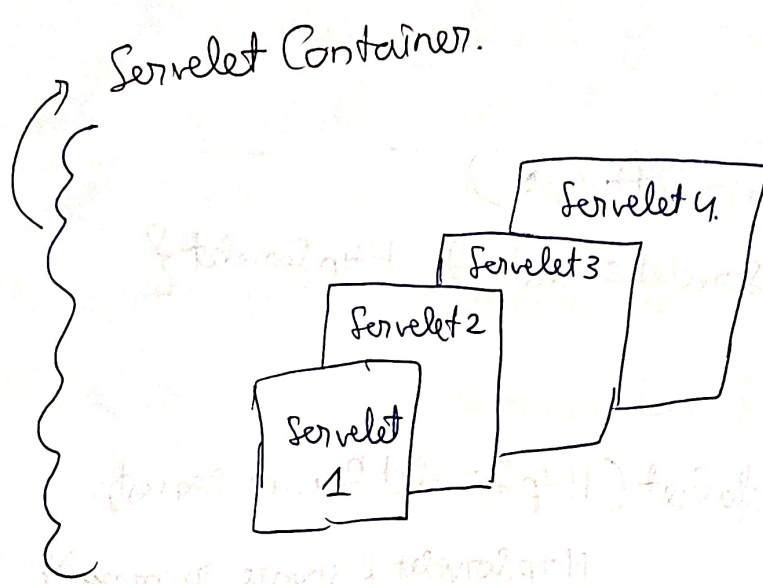 Servelet Container.
Servelet 4.
Servelet 3
Servelet 2
Servelet
1